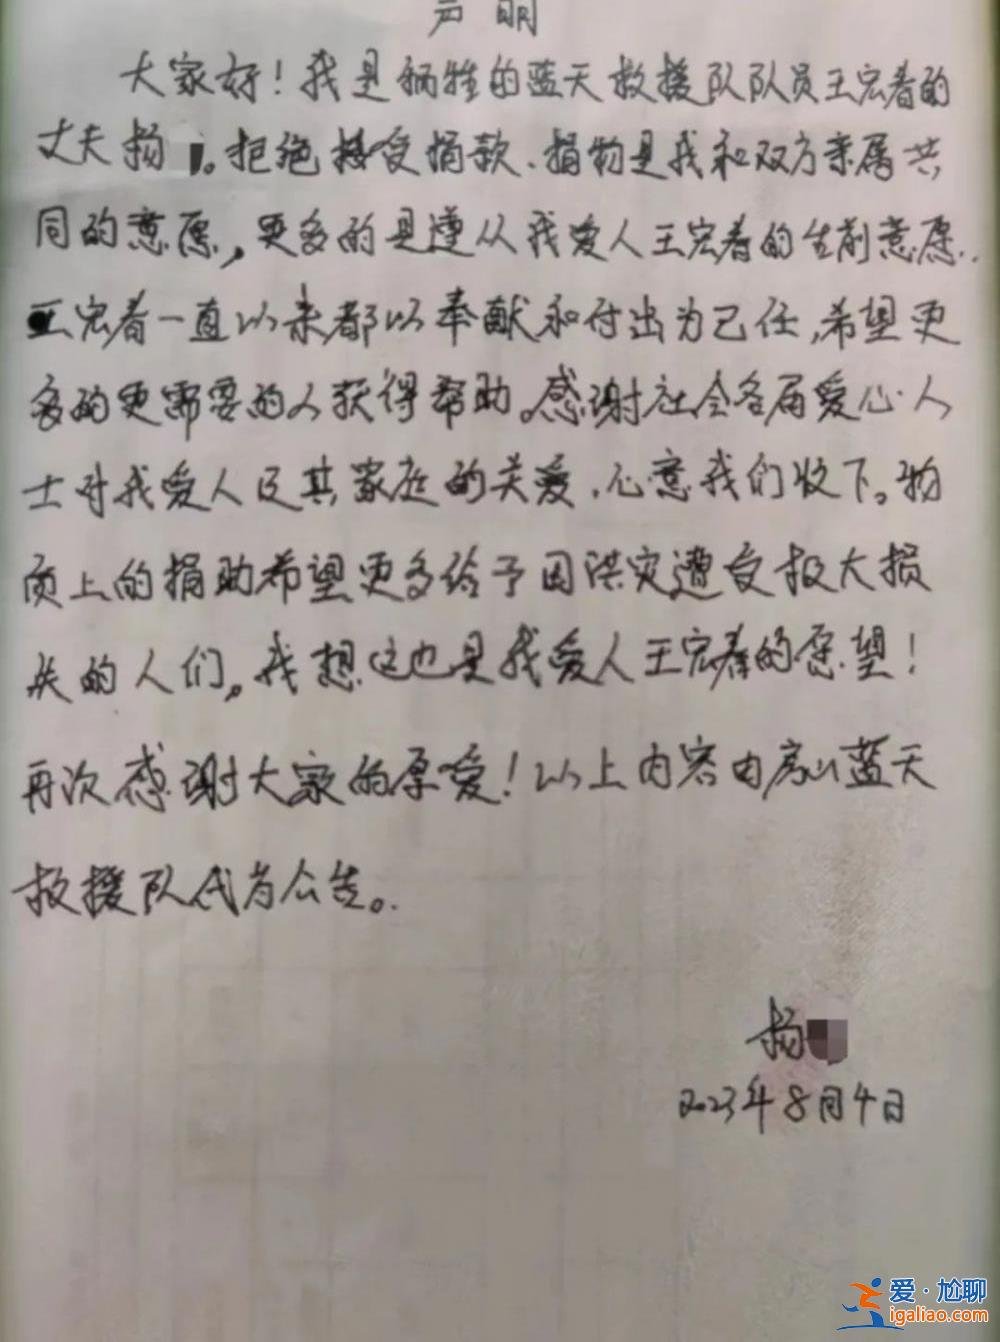 声明
大家好！我是牺牲的蓝天救援队队员王宏春的
丈夫杨。拒绝接受捐款、捐物是我和双方亲属共
同的意愿，更多的是遵从我爱人王宏春的生前意愿.
王宏春一直以来都以奉献和付出为己任，希望更
多的更需要的人获得帮助。感谢社会各届爱心人
士对我爱人及其家庭的关爱、心意我们收下。物
质上的捐助希望更多给予因洪灾遭受极大损
失的人们。我想这也是我爱人王宏春的愿望！
再次感谢大家的厚爱！以上内容由房山蓝天
救援队代为公告。
杨
2023年8月4日
爱·尬聊
igaliao.com